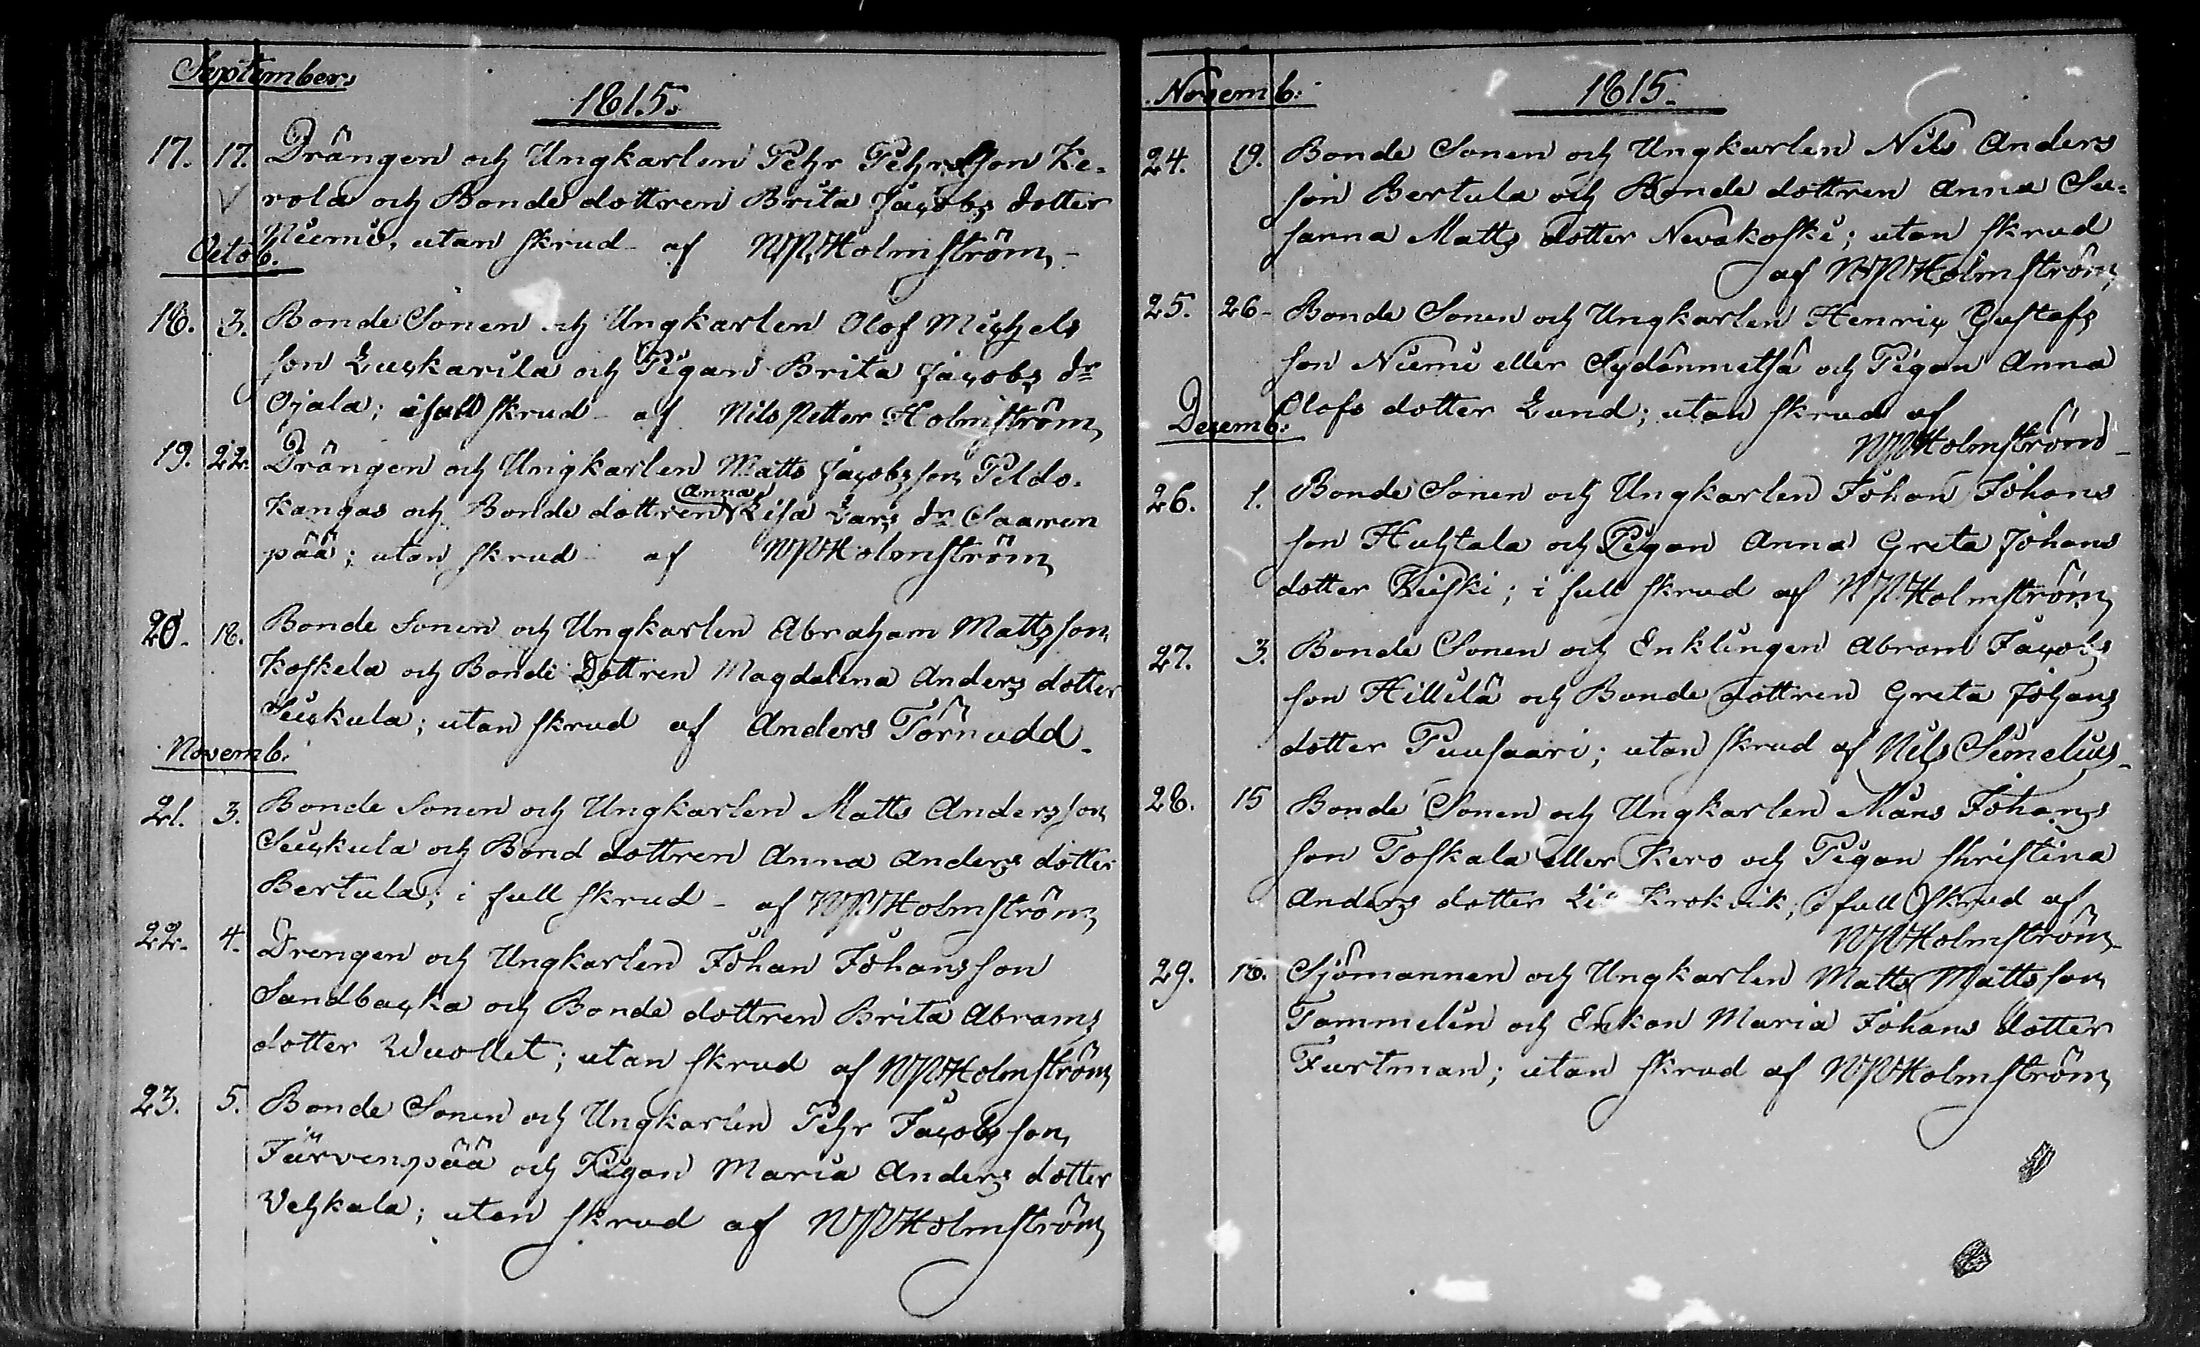 September:
1815.
17. 17. Drängen och Ungkarlen Pehr Pehrsson Ke-
rola och Bonde dottren Brita Jacobs dotter
Niemi, utan skrud af NP. Holmström,
Octob.
18. 3. Bonde Sonen och Ungkarlen Olof Michels
son Luckarila och Pigan Brita Jacobs dr
Ojala; i full skrud af Nils Petter Holmström,
19. 22. Drängen och Ungkarlen Matts Jacobsson Peldo-
Anna
kangas och Bonde dottren Lisa Lars dr Saaren
pää; utan skrud af NPHolmström
20. 18. Bonde Sonen och Ungkarlen Abraham Mattsson
Koskela och Bonde Dottren Magdalena Anders dotter
Seickula; utan skrud af Anders Törnudd.
Novemb.
21. 3. Bonde Sonen och Ungkarlen Matts Andersson
Seickula och Bond dottren Anna Anders dotter
Bertula; i full skrud af NPHolmström
22. 4. Drengen och Ungkarlen Johan Johansson
Sandbacka och Bonde dottren Brita Abrams
dotter Wuollet; utan skrud af NPHolmström
23. 5. Bonde Sonen och Ungkarlen Pehr Jacobsson
Järvenpää och Pigan Maria Anders dotter
Vehkala; utan skrud af NPHolmström
Novemb:
1815.
24. 19. Bonde Sonen och Ungkarlen Nils Anders
son Bertula och Bonde dottren Anna Su-
sanna Matts dotter Nevakoski; utan skrud
af NPHolmström,
25. 26 Bonde Sonen och Ungkarlen Henric Gustafs
son Niemi eller Sydänmetsä och Pigan Anna
Olofs dotter Lund; utan skrud af
Decemb:
NPHolmström
26. 1. Bonde Sonen och Ungkarlen Johan Johans
son Huhtala och Pigan Anna Greta Johans
dotter Kuiski; i full skrud af NPHolmström
27. 3. Bonde Sonen och Enklingen Abram Jacobs
son Hillilä och Bonde dottren Greta Johans
dotter Puusaari; utan skrud af Nils Simelius
28. 15 Bonde Sonen och Ungkarlen Måns Johans
son Toskala eller Kero och Pigan Christina
Anders dotter Krokvik, i full skrud af
NPHolmström
29. 18. Sjömannen och Ungkarlen Matts Mattsson
Tammelin och Enkan Maria Johans dotter
Furtman; utan skrud af NPHolmström